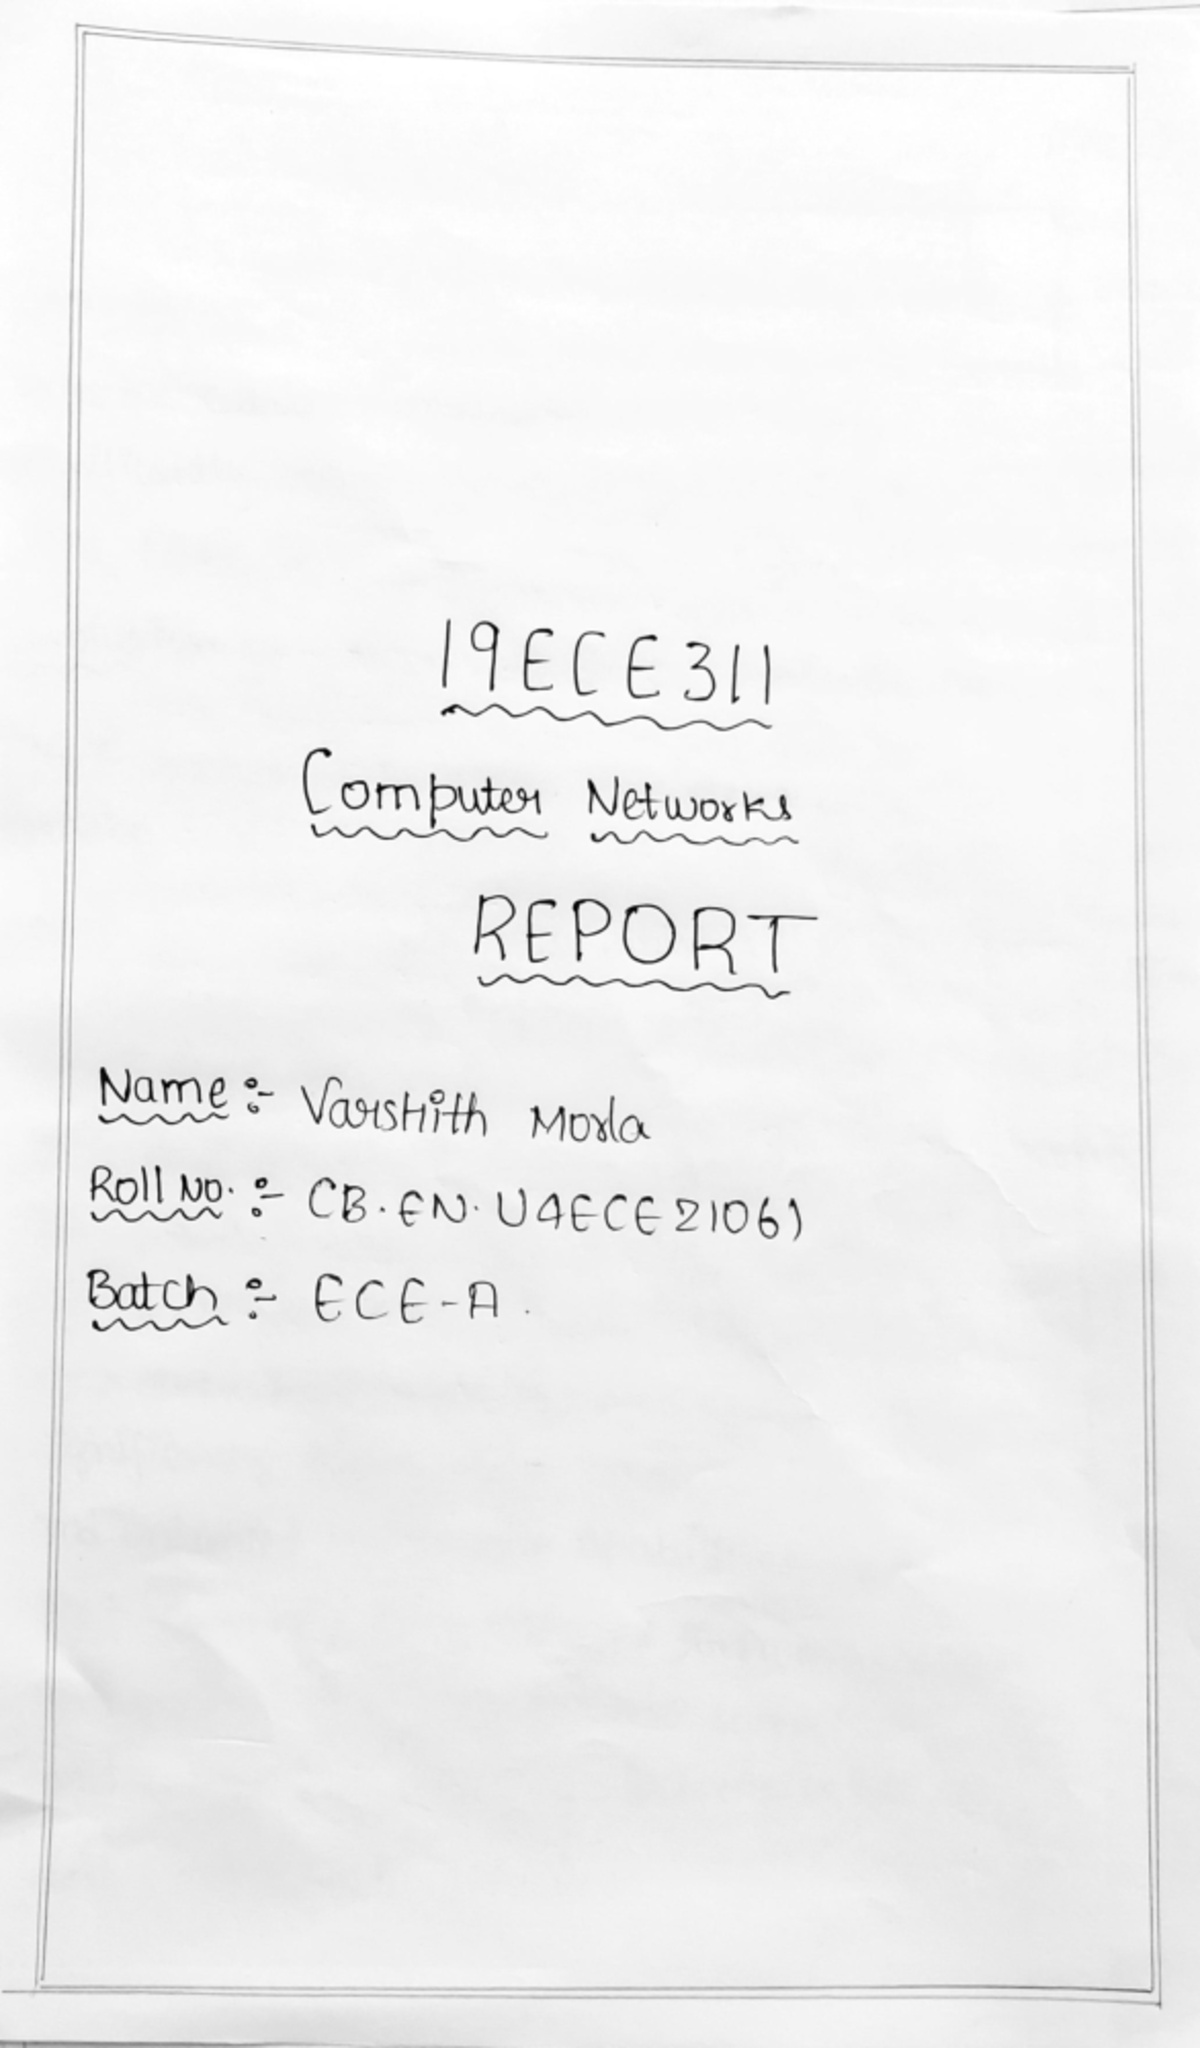 19ECE311
Computer Networks
REPORT
Name :- Varshith Morla
Roll No. :- CB.EN.U4ECE21061
Batch :- ECE-A.